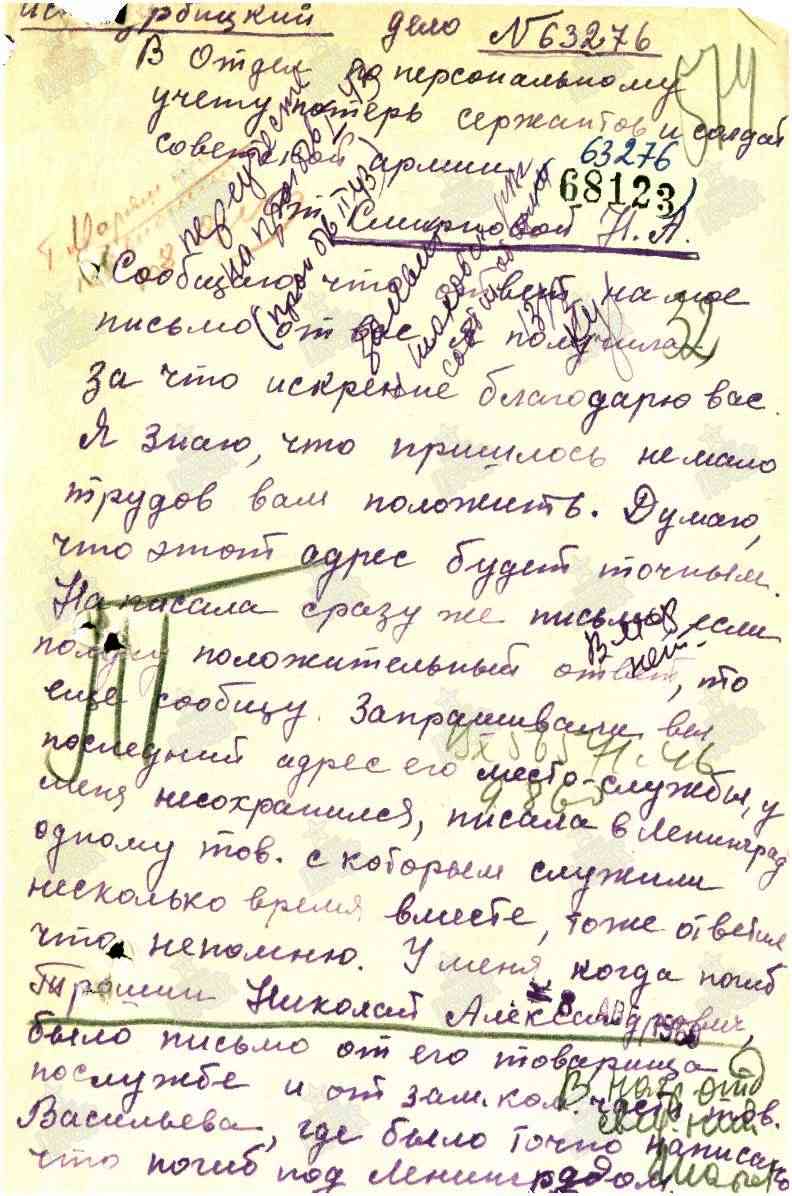 дело №63276
В Отдел по персональному
учету потерь сержантов и солдат
советской армии 63276
68123
от Смирновой Н. А.
Сообщаю что ответ на мое
письмо от вас я получила,
за что искренне благодарю вас.
Я знаю, что пришлось немало
трудов вам положить. Думаю,
что этот адрес будет точным.
Написала сразу же письмо, если
получу положительный ответ, то
еще сообщу. Запрашивали вы
последний адрес его место-службы, у
меня несохранился, писала в Ленинград
одному тов. с которым служили
несколько время вместе, тоже ответил
что непомню. У меня, когда погиб
Трошин Николай Александрович,
было письмо от его товарища
послужбе и от зам. ком. части тов.
Васильева, где было точно написано
что погиб под Ленинградом